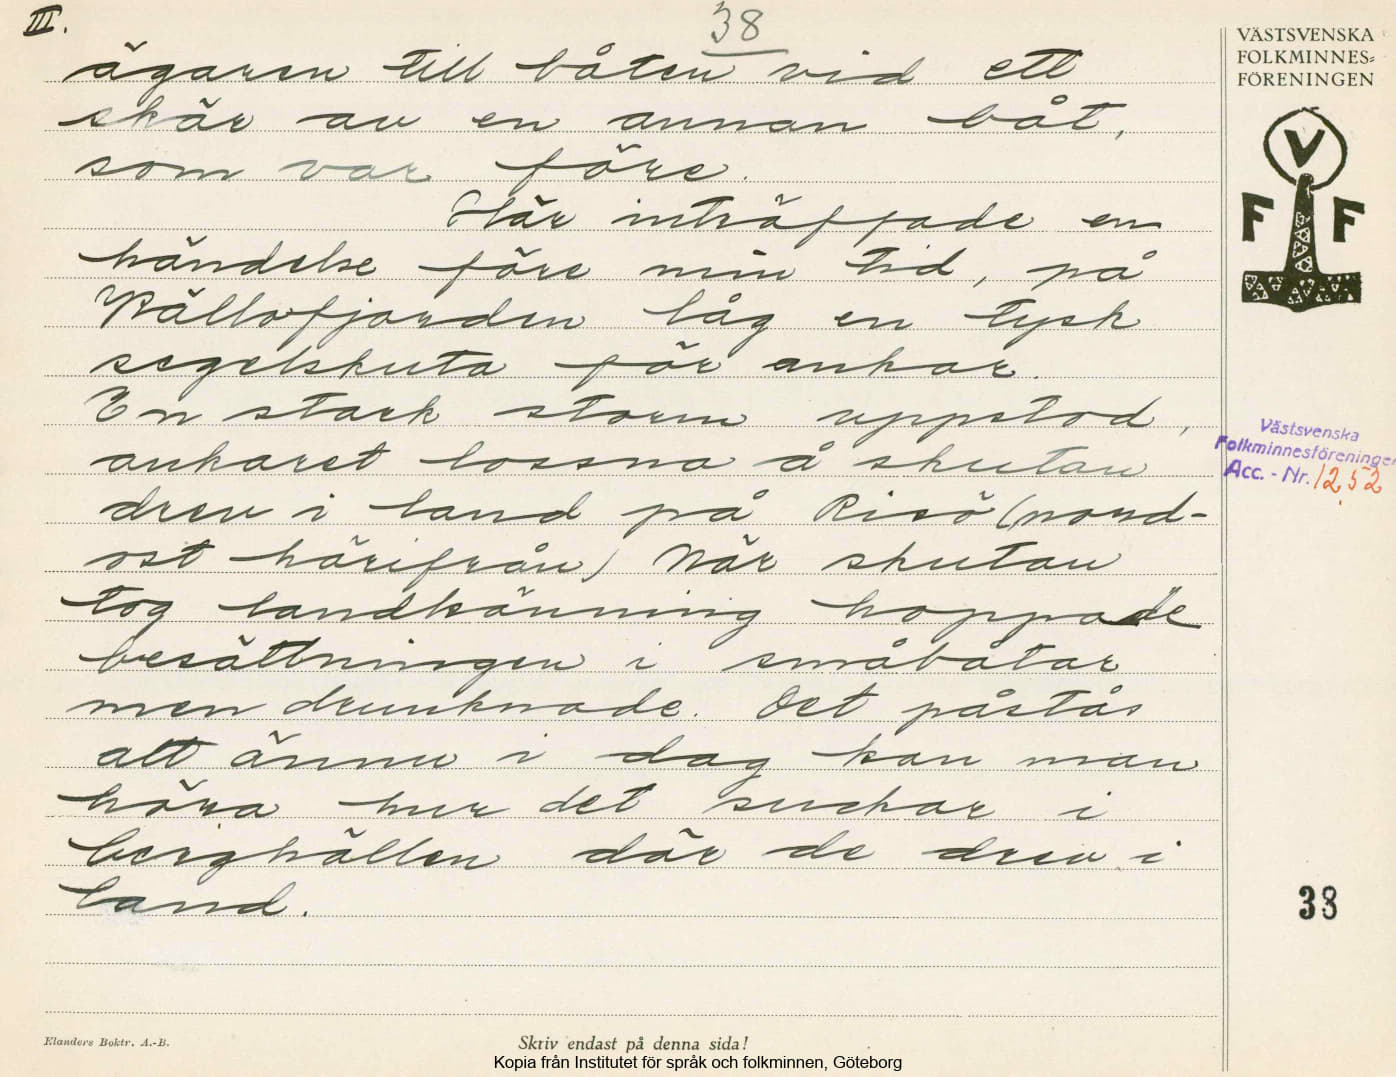 III.
38
ägaren till båten vid ett
skär av en annan båt,
som var före.
Här inträffade en
händelse före min tid, på
Källofjorden låg en tysk
segelskuta för ankar.
En stark storm uppstod,
ankaret lossna å skutan
drev i land på Risö (nord-
ost härifrån) När skutan
tog landkänning hoppade
besättningen i småbåtar
men drunknade. Det påstås
att ännu i dag kan man
höra hur det suckar i
berghällen där de drev i
land.
VÄSTSVENSKA
FOLKMINNES-
FÖRENINGEN
V
F F
Västsvenska
Folkminnesföreningen
Acc. - Nr. 1252
38
Elanders Boktr. A.-B.
Skriv endast på denna sida!
Kopia från Institutet för språk och folkminnen, Göteborg